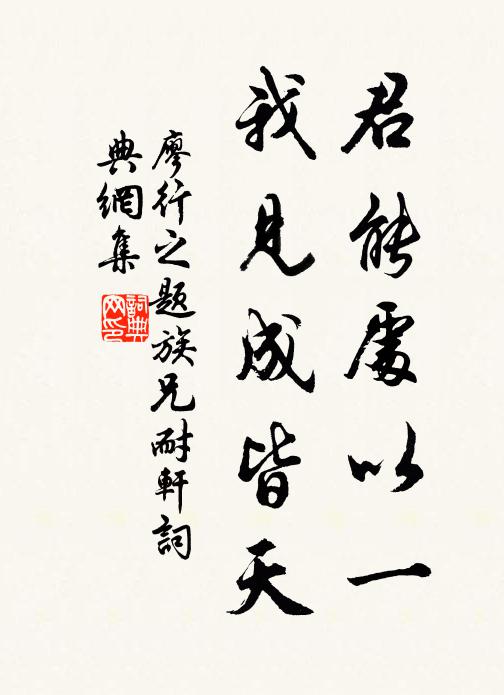 君能處以一
我見成皆天
廖行之題族兄耐軒詞
典網集
詞典網印